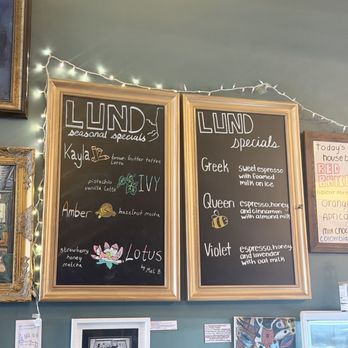 LUND
seasonal specials
Kayla
brown butter toffee
latte
pistachio
vanilla latte
IVY
Amber
hazelnut mocha
strawberry
honey
matcha
LOTUS
by Mel B
LUND
specials
Greek
sweet espresso
with foamed
milk on ice
Queen
espresso, honey
and cinnamon
with almond milk
Violet
espresso, honey
and lavender
with oat milk
Today's
house b
RED
Orang
Aprico
milk choc
colombia